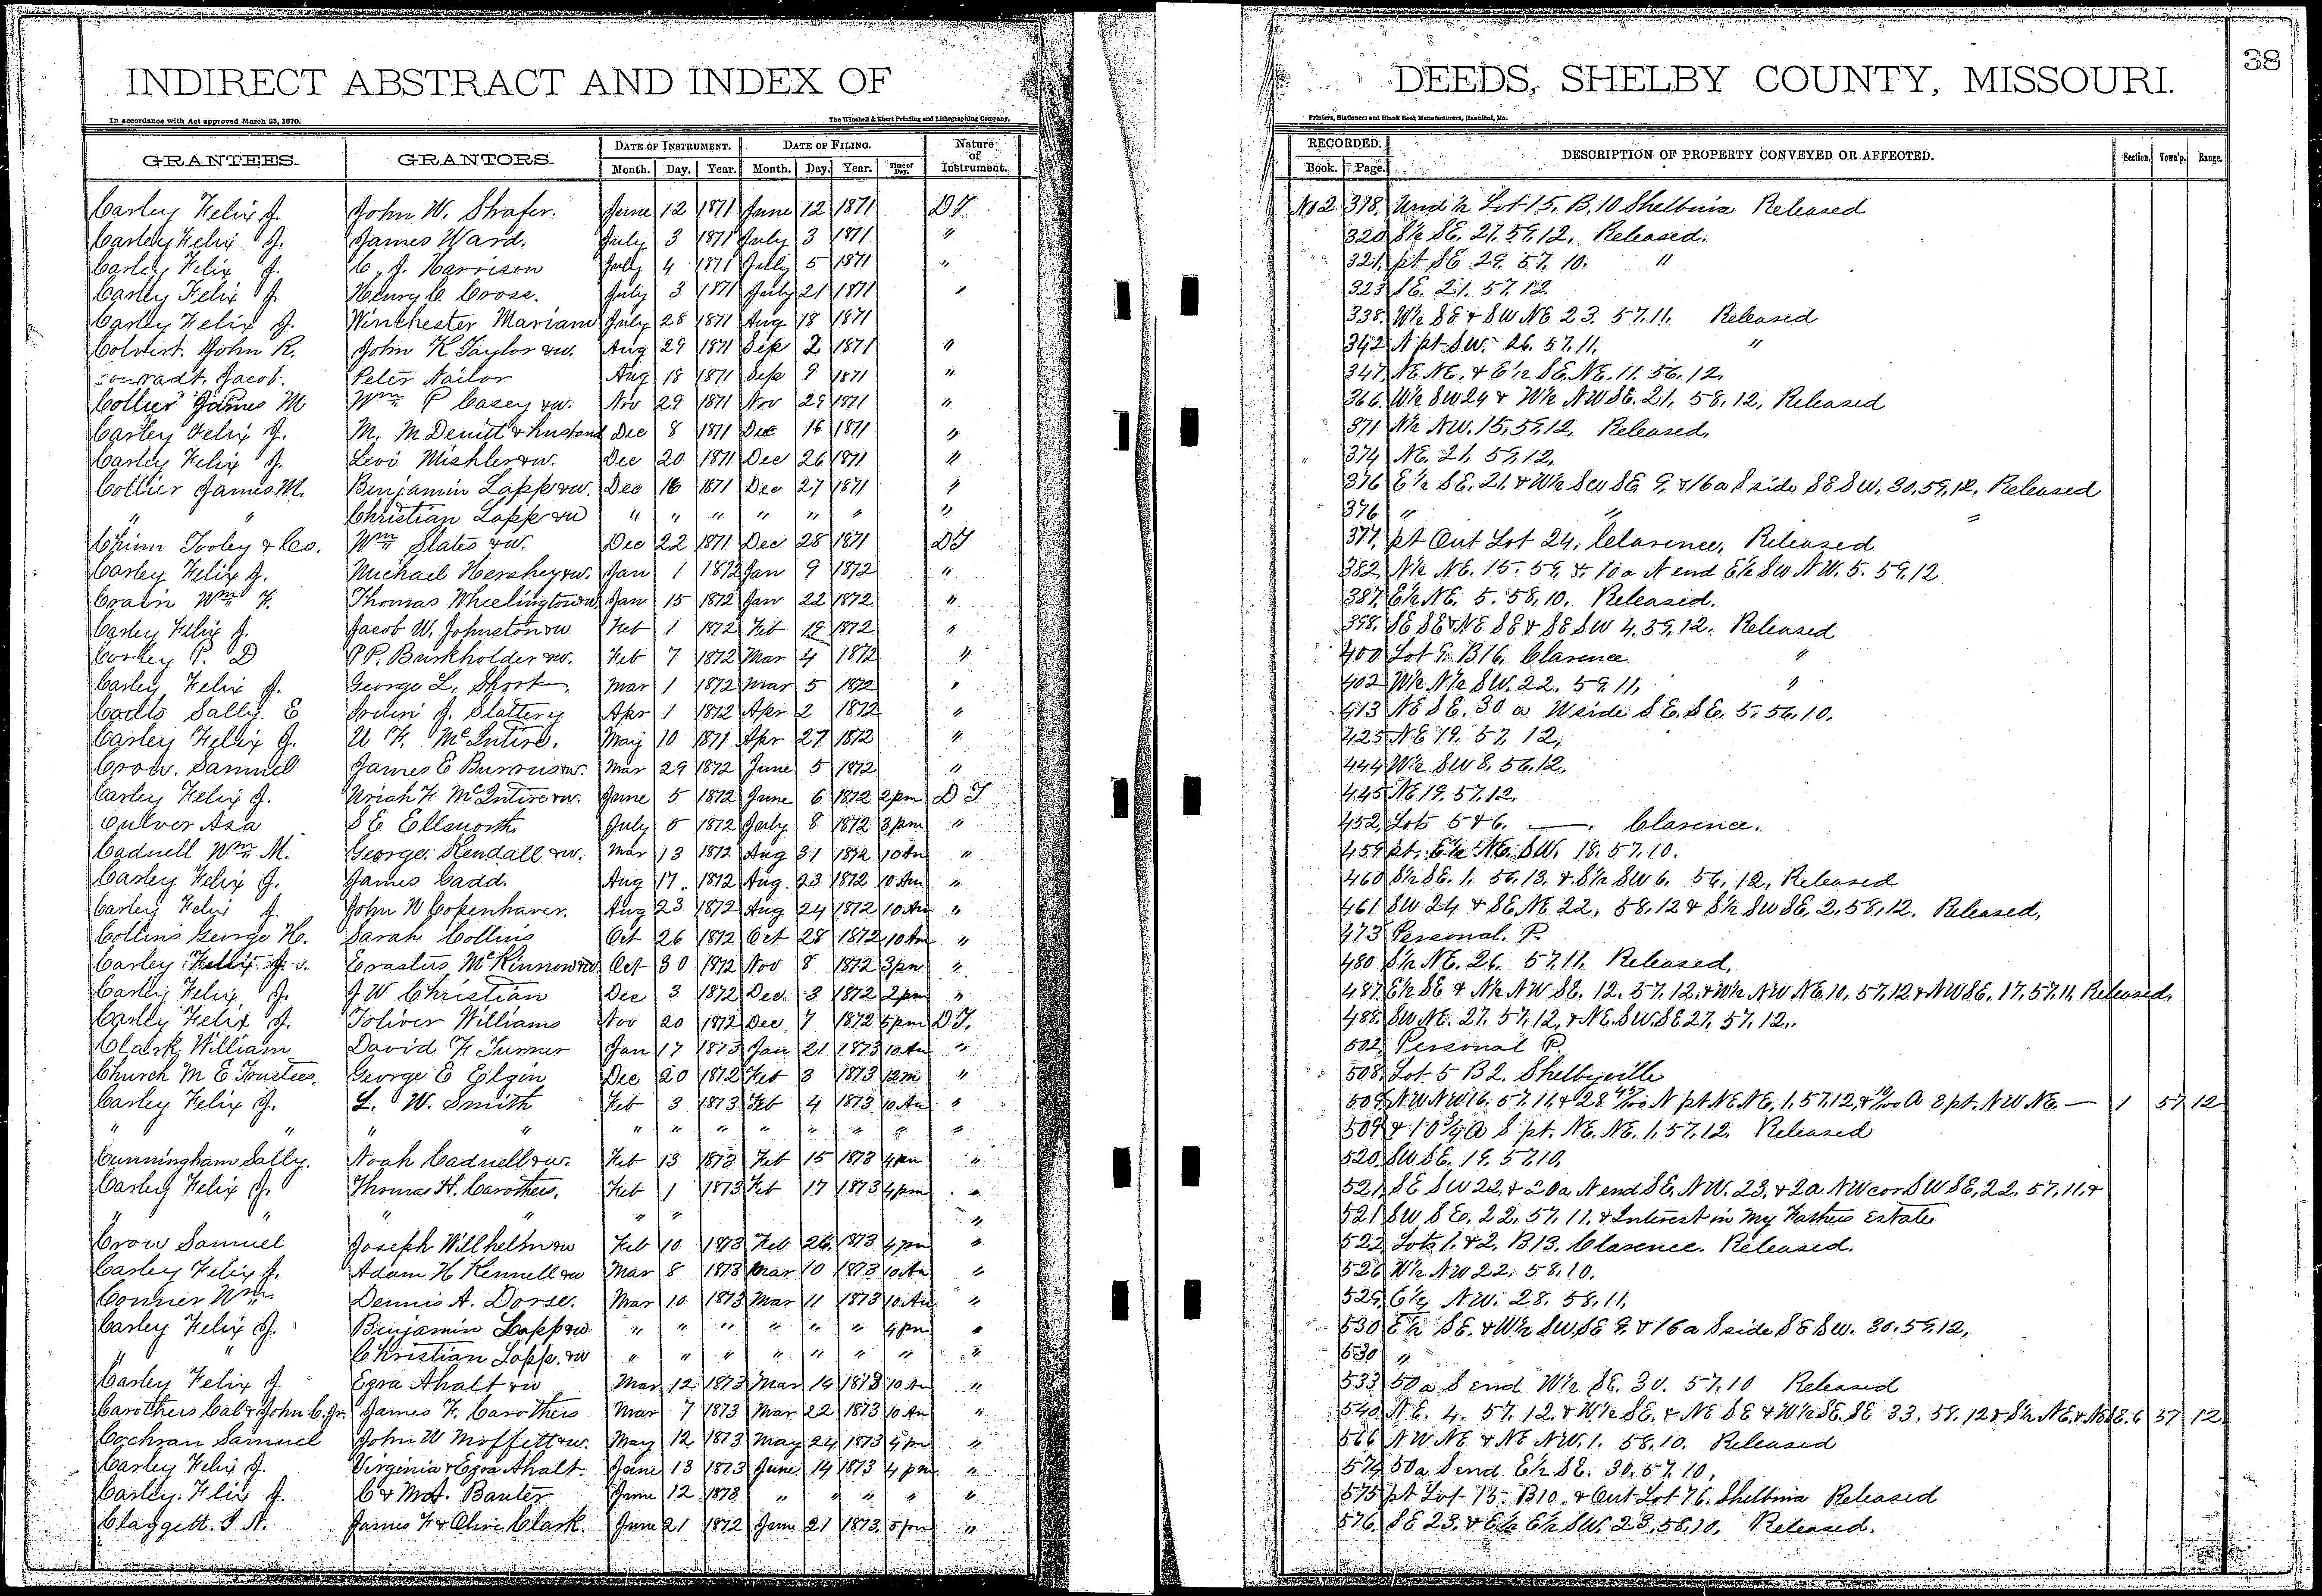 38
INDIRECT ABSTRACT AND INDEX OF DEEDS, SHELBY COUNTY, MISSOURI.
In accordance with Act approved March 25, 1870. The Winchell & Ebert Printing and Lithographing Company, Printers, Stationers and Blank Book Manufacturers, Hannibal, Mo.
GRANTEES. GRANTORS. DATE OF INSTRUMENT. DATE OF FILING. Nature of Instrument. RECORDED. DESCRIPTION OF PROPERTY CONVEYED OR AFFECTED. Section. Town'p. Range.
Month. Day. Year. Month. Day. Year. Time of Day. Book. Page.
Carley Felix J. John W. Shafer. June 12 1871 June 12 1871 DT No 2 318. Und ½ Lot 15. B. 10 Shelbina Released
Carley Felix J. James Ward. July 3 1871 July 3 1871 " 320 S½ SE. 27. 59. 12. Released.
Carley Felix J. C. J. Harrison July 4 1871 July 5 1871 " 321. pt SE 29. 57. 10. "
Carley Felix J. Henry C. Cross. July 3 1871 July 21 1871 " 323 SE. 21. 57. 12.
Carley Felix J. Winchester Mariam July 28 1871 Aug 18 1871 338. W½ SE & SW NE 23. 57. 11. Released
Colvert. John R. John K Taylor &w. Aug 29 1871 Sep 2 1871 " 342 N pt SW. 26. 57. 11. "
Conradt, Jacob. Peter Nailor Aug 18 1871 Sep 9 1871 " 347. NE NE. & E½ SE. NE. 11. 56. 12.
Collier James M Wm P Casey &w. Nov 29 1871 Nov 29 1871 " 366. W½ SW 24 & W½ NW SE. 21. 58. 12. Released
Carley Felix J. M. M Denitt & husband Dec 8 1871 Dec 16 1871 " 371 N½ NW. 15. 59. 12. Released.
Carley Felix J. Levi Mishler &w. Dec 20 1871 Dec 26 1871 " 374 NE. 21. 59. 12.
Collier James M. Benjamin Lapp &w. Dec 16 1871 Dec 27 1871 " 376 E½ SE. 21. & W½ SW SE 9. & 16 a S side SE SW. 30. 59. 12. Released
" " Christian Lapp &w " " " " " " " 376 " " "
Chinn Tooley & Co. Wm Slates &w. Dec 22 1871 Dec 28 1871 DT 377. pt Out Lot 24. Clarence. Released
Carley Felix J. Michael Hershey &w. Jan 1 1872 Jan 9 1872 " 382 N½ NE. 15. 59. & 10 a N end E½ SW NW. 5. 59. 12
Crain Wm F. Thomas Wheelington &w Jan 15 1872 Jan 22 1872 " 387. E½ NE. 5. 58. 10. Released.
Carley Felix J. Jacob W. Johnston &w Feb 1 1872 Feb 19 1872 " 398. SE SE & NE SE & SE SW 4. 59. 12. Released
P. D P P. Burkholder &w. Feb 7 1872 Mar 4 1872 " 400 Lot 9. B 16. Clarence "
Carley Felix J. George L. Short. Mar 1 1872 Mar 5 1872 " 402 W½ N½ SW. 22. 59. 11. "
Sally. E J. Slattery Apr 1 1872 Apr 2 1872 " 413 NE SE. 30 a W side SE. SE. 5. 56. 10.
Carley Felix J. U F. McIntire. May 10 1871 Apr 27 1872 " 425 NE 19. 57. 12.
Crow. Samuel James E Burrus &w. Mar 29 1872 June 5 1872 " 444 W½ SW 8. 56. 12.
Carley Felix J. Uriah F McIntire &w. June 5 1872 June 6 1872 2pm DT 445 NE 19. 57. 12.
Culver Asa S E Ellsworth July 5 1872 July 8 1872 3pm " 452. Lots 5 & 6. —. Clarence.
Cadwell Wm M. George Kendall &w. Mar 13 1872 Aug 31 1872 10 Am " 459 pt. E½ NE. SW. 18. 57. 10.
Carley Felix J. James Cadd. Aug 17. 1872 Aug. 23 1872 10 Am " 460 S½ SE. 1. 56. 13. & S½ SW 6. 56. 12. Released
Carley Felix J. John W Copenhaver. Aug 23 1872 Aug 24 1872 10 Am " 461 SW 24 & SE. NE 22. 58. 12 & S½ SW SE. 2. 58. 12. Released.
Collins George H. Sarah Collins Oct 26 1872 Oct 28 1872 10 Am " 473 Personal. P.
Carley Felix J. Erastus McKinnow &w Oct 30 1872 Nov 8 1872 3pm " 480 S½ NE. 26. 57. 11. Released.
Carley Felix J. J W Christian Dec 3 1872 Dec. 3 1872 2pm " 487. E½ SE & N½ NW SE. 12. 57. 12. & W½ NW NE. 10. 57. 12 & NW SE. 17. 57. 11. Released.
Carley Felix J. Toliver Williams Nov 20 1872 Dec. 7 1872 5pm DT. 488. SW NE. 27. 57. 12. & NE. SW. SE 27. 57. 12.
Clark William David F Turner Jan 17 1873 Jan 21 1873 10 Am " 502 Personal P.
Church M E Trustees. George E Elgin Dec 20 1872 Feb 3 1873 12 m " 508. Lot 5 B 2. Shelbyville
Carley Felix J. L. W. Smith Feb 3 1873 Feb 4 1873 10 Am " 509. NW NW 16. 57. 11. & 28 N pt NE NE. 1. 57. 12. & A S pt. NW NE. — 1 57 12
" " " " " " " " " " " " 509 & 10¾ A S pt. NE. NE. 1. 57. 12. Released
Cunningham Sally. Noah Cadwell &w. Feb 13 1873 Feb 15 1873 4pm " 520. SW SE. 19. 57. 10.
Carley Felix J. Thomas H. Carothers. Feb 1 1873 Feb 17 1873 4pm " 521. SE SW 22. & 20 a N end SE. NW. 23. & 2 a NW cor SW SE. 22. 57. 11. &
" " " " " " " 521 SW SE. 22. 57. 11. & Interest in my Fathers Estate
Crow Samuel Joseph Willhelm &w Feb 10 1873 Feb 26. 1873 4pm " 522 Lots 1. & 2. B 13. Clarence. Released.
Carley Felix J. Adam H Kennell &w Mar 8 1873 Mar 10 1873 10 Am " 526 W½ NW 22. 58. 10.
Conner Wm. Dennis A. Dorse. Mar 10 1873 Mar 11 1873 10 Am " 529. E½ NW. 28. 58. 11.
Carley Felix J. Benjamin Lapp &w. " " " " " " 4pm " 530 E½ SE. & W½ SW. SE 9. & 16 a S side SE SW. 30. 59. 12.
" " Christian Lapp. &w " " " " " " " " 530 "
Carley Felix J. Ezra Ahalt &w Mar 12 1873 Mar 14 1873 10 Am " 533 50 a S end W½ SE. 30. 57. 10 Released
Carothers Cal & John C. Jr. James F. Carothers Mar 7 1873 Mar. 22 1873 10 Am " 540 N E. 4. 57. 12. & W½ SE. & NE SE & W½ SE. SE 33. 58. 12 & S½ NE. & 6 57 12
Cochran Samuel John W Moffett &w. May 12 1873 May 24 1873 5pm " 566 NW. NE & NE NW. 1. 58. 10. Released
Carley Felix J. Virginia & Ezra Ahalt. June 13 1873 June 14 1873 4 pm " 574 50 a S end E½ SE. 30. 57. 10.
Carley. Felix J. C & M A. Banter June 12 1873 " " " " " 575 pt Lot 15. B 10. & Out Lot 76. Shelbina Released
Claggett. J N. James F & Olive Clark. June 21 1872 June 21 1873. 5pm " 576. SE 23. & E½ E½ SW. 23. 58. 10. Released.